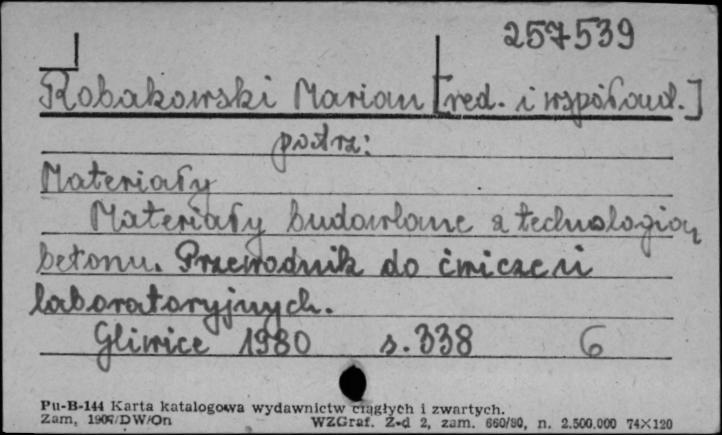 257539
Robakowski Marian [red. i współaut.]
patrz:
Materiały
Materiały budowlane z technologią
betonu. Przewodnik do ćwiczeń
laboratoryjnych.
Gliwice 1980 s. 338 6
Pu-B-144 Karta katalogowa wydawnictw ciągłych i zwartych.
Zam, /DW/On WZGraf. Z-d 2, zam. 660/80, n. 2.500.000 74×120